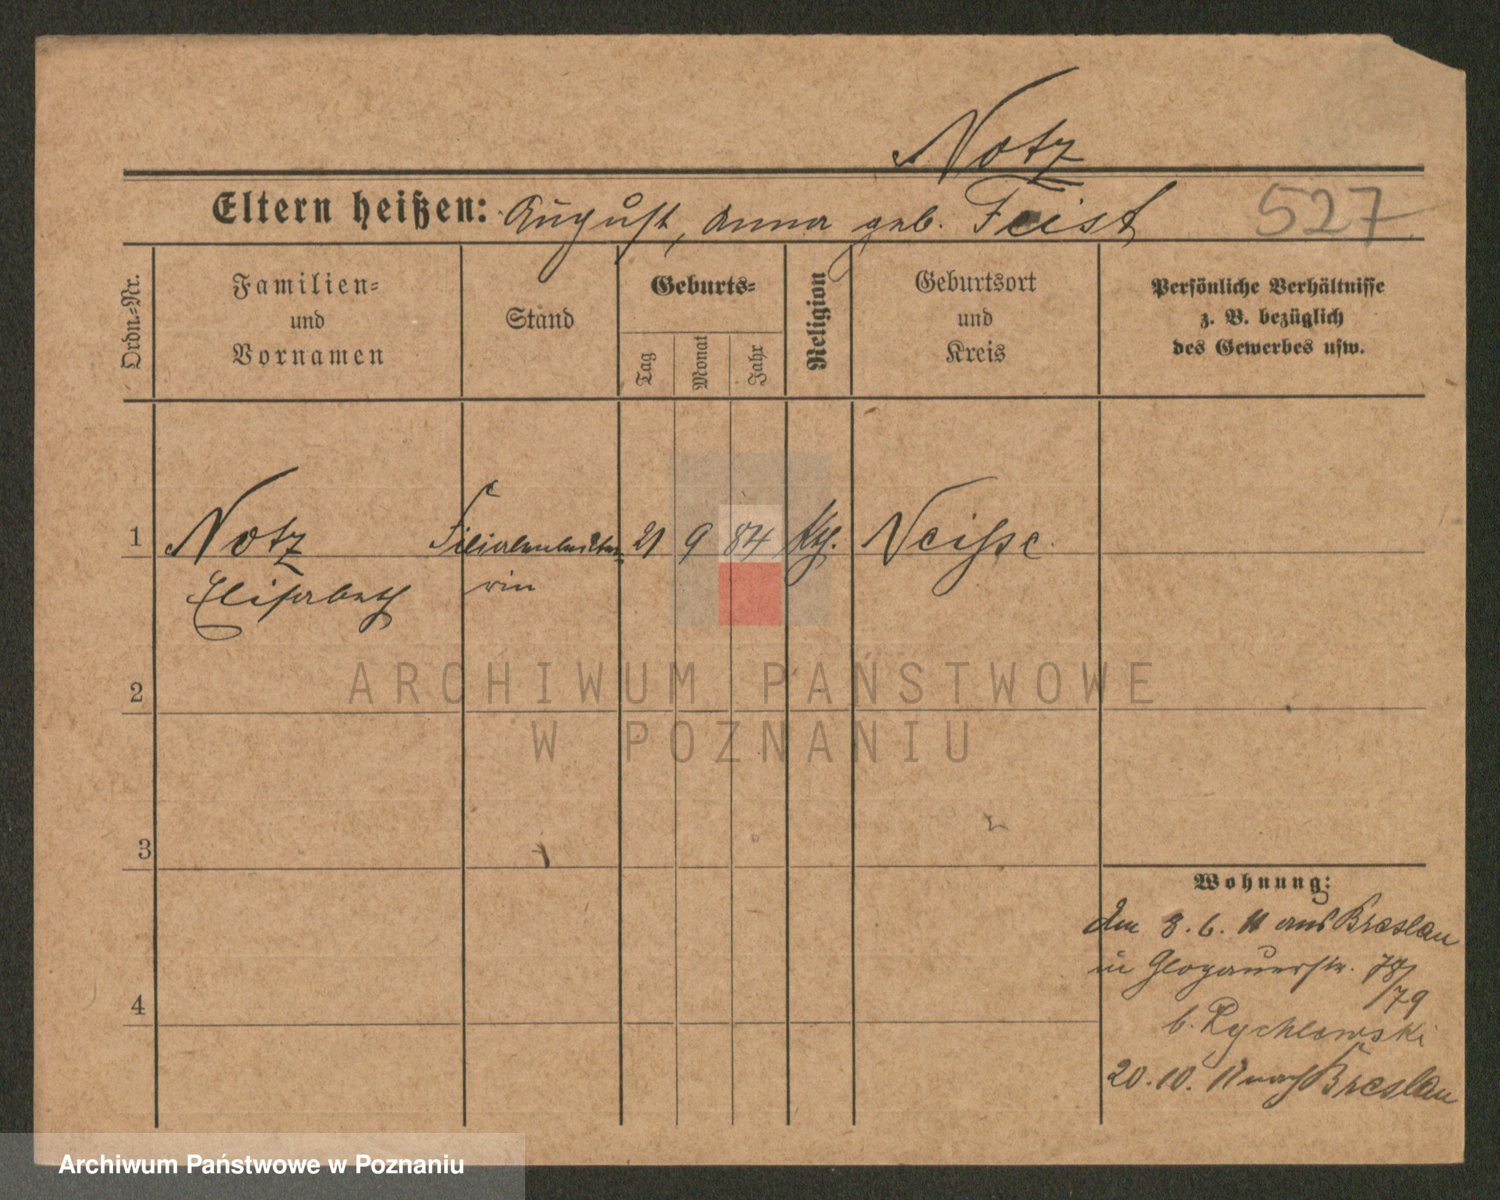 Notz
Eltern heißen: August, Anna geb. Feist 527
Ordn.-Nr.
Familien-
und
Vornamen
Stand
Geburts-
Tag
Monat
Jahr
Religion
Geburtsort
und
Kreis
Persönliche Verhältnisse
z. B. bezüglich
des Gewerbes usw.
1 Notz Filialenleite- 21 9 84 Kth. Neisse
Elisabeth rin
2
ARCHIWUM PAŃSTWOWE
W POZNANIU
3
Wohnung:
am 8. 6. 11 aus Breslau
in Glogauerstr. 78/
79
b. Rychlewski
4
20. 10. 11 nach Breslau
Archiwum Państwowe w Poznaniu